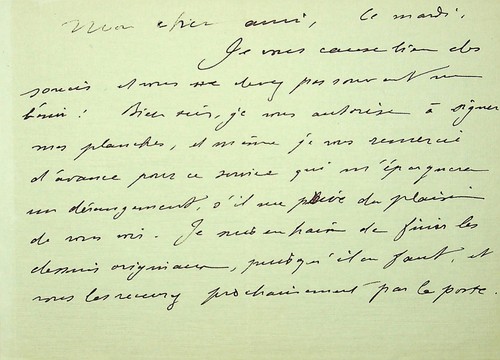 Mon cher ami, Ce mardi,
Je vous cause bien des
soucis et vous ne devez pas souvent me
bénir! Bien sûr, je vous autorise à signer
mes planches, et même je vous remercie
d'avance pour ce service qui m'épargnera
un dérangement, s'il me prive du plaisir
de vous voir. Je suis en train de finir les
dessins originaux, puisqu'il en faut, et
vous les recevrez prochainement par la poste.